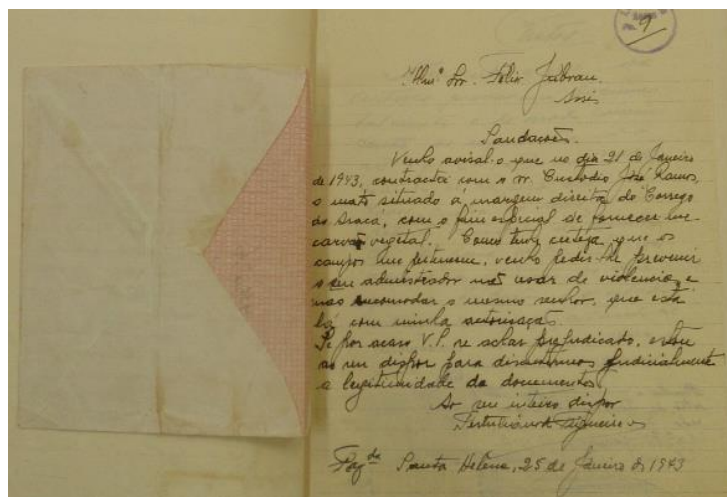 9
Illmº Snr. Felix Jabrau.
Assis
Saudações.
Venho avisal-o que no dia 21 de Janeiro
de 1943, contractei com o sr. Custodio José Ramos,
o mato situado á margem direita do Corrego
do Aracá, com o fim especial de fornecer-me
carvão vegetal. Como tenho certeza que os
campos me pertencem, venho pedir-lhe prevenir
o seu administrador não usar de violencia, e
não encomodar o mesmo senhor, que está
lá com minha autorisação.
Si por acaso V.S. se achar prejudicado, estou
ao seu dispor para discutirmos judicialmente
a legitimidade de documentos.
Ao seu inteiro dispor
Fazda Santa Helena, 25 de Janeiro de 1943